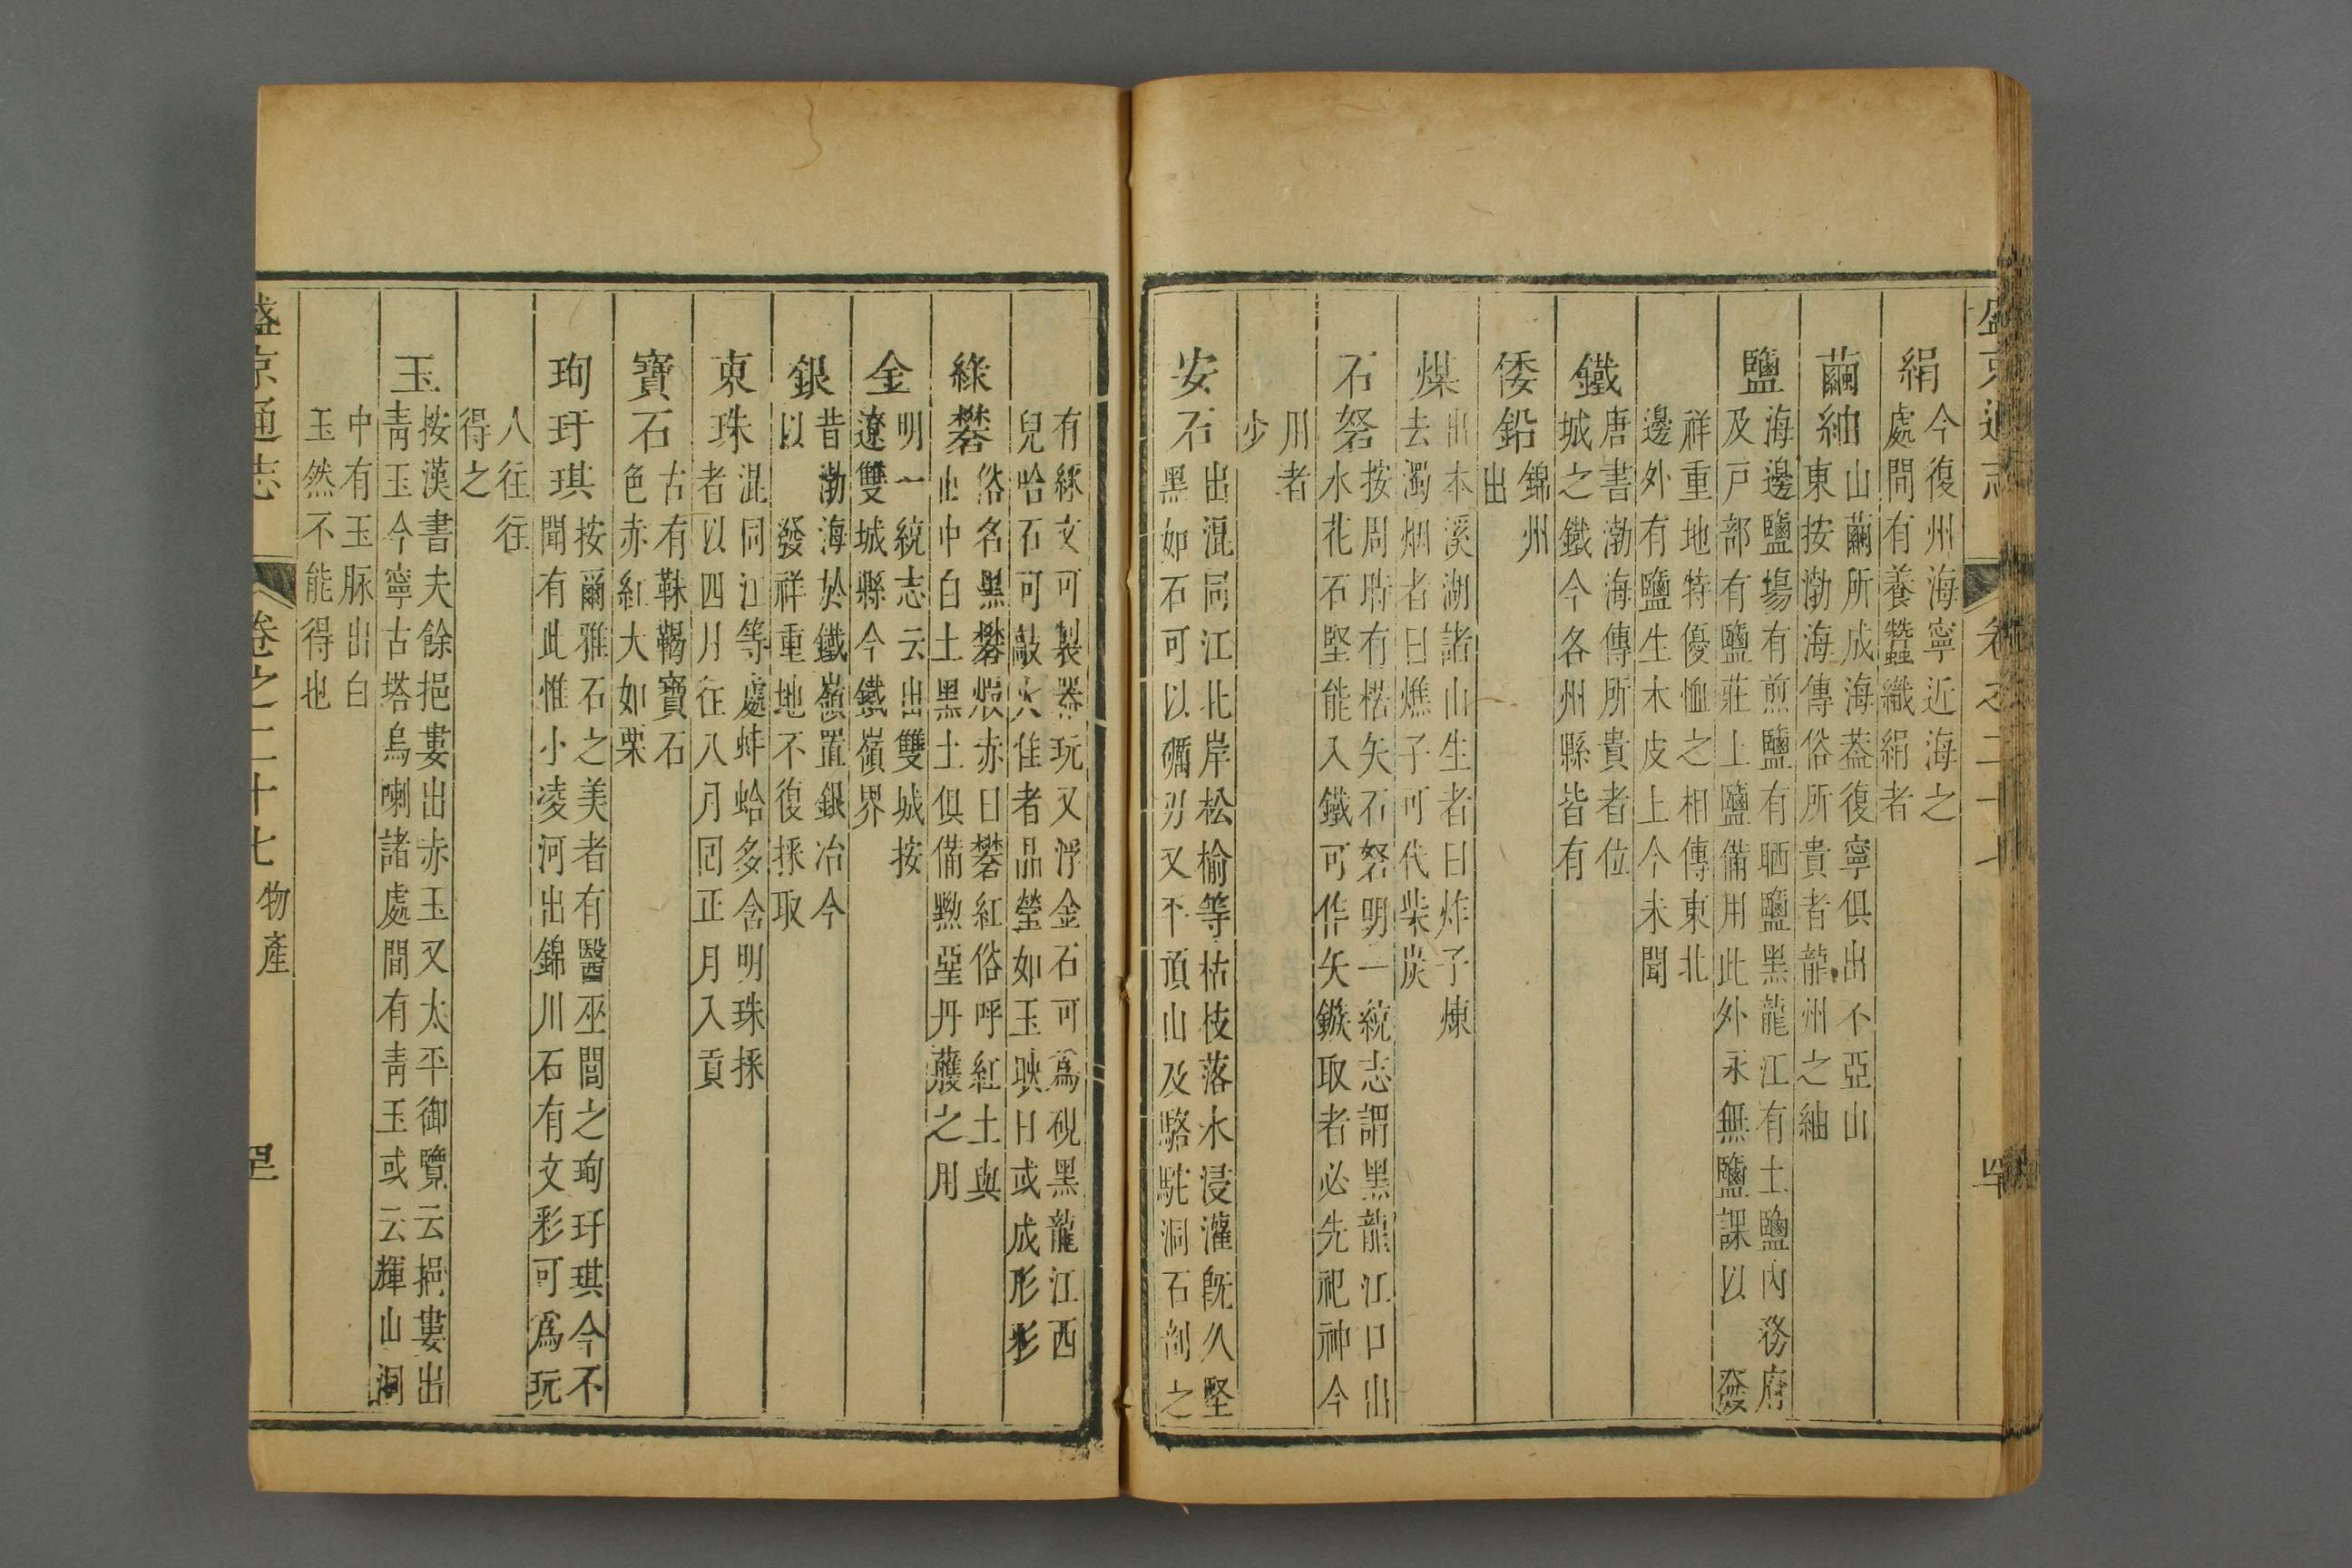 盛京通志 卷之二十七
絹 今復州海寧近海之
處間有養蠶織絹者
繭紬 山繭所成海蓋復寧俱出不亞山
東按渤海傳俗所貴者龍州之紬
鹽 海邊鹽場有煎鹽有晒鹽黑龍江有土鹽內務府
及戸部有鹽莊上鹽備用此外永無鹽課以 發
祥重地特優恤之相傳東北
邊外有鹽生木皮上今未聞
鐵 唐書渤海傳所貴者位
城之鐵今各州縣皆有
倭鉛 錦州
出
煤 出本溪湖諸山生者曰炸子煉
去濁烟者曰燋子可代柴炭
石砮 按周時有楛矢石砮明一統志謂黑龍江口出
水花石堅能入鐵可作矢鏃取者必先祀神今
用者
少
安石 出混同江北岸松榆等枯枝落水浸灌旣久堅
黑如石可以礪刃又不頂山及駱駝洞石剖之
有綠文可製器玩又浮金石可爲硯黑龍江西
兒哈石可敲火佳者品瑩如玉映日或成形彩
綠礬 俗名黑礬煆赤曰礬紅俗呼紅土與
止中白土黑土俱備黝堊丹雘之用
金 明一統志云出雙城按
遼雙城縣今鐵嶺界
銀 昔渤海於鐵嶺置銀冶今
以 發祥重地不復採取
東珠 混同江等處蚌蛤多含明珠採
者以四月往八月囘正月入貢
寶石 古有靺鞨寶石
色赤紅大如栗
珣玗琪 按爾雅石之美者有醫巫閭之珣玗琪今不
聞有此惟小凌河出錦川石有文彩可爲玩
人往往
得之
玉 按漢書夫餘挹婁出赤玉又太平御覽云挹婁出
靑玉今寧古塔烏喇諸處間有靑玉或云輝山洞
中有玉脉出白
玉然不能得也
盛京通志 卷之二十七 物產